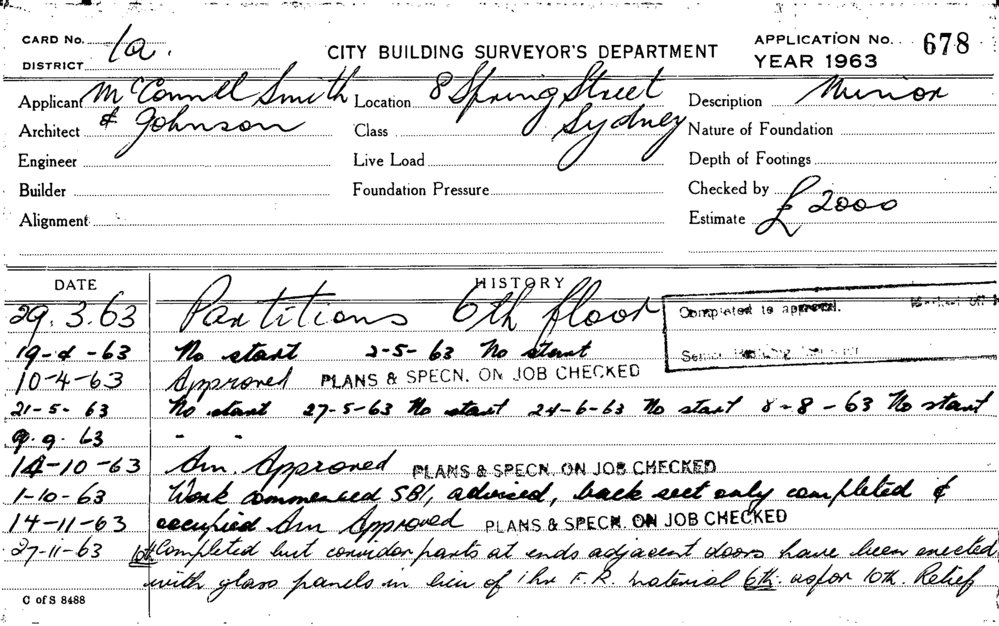 CARD No. 1a. CITY BUILDING SURVEYOR'S DEPARTMENT APPLICATION No. 678
DISTRICT YEAR 1963
Applicant McConnell Smith Location 8 Spring Street Description Minor
Architect & Johnson Class Sydney Nature of Foundation
Engineer Live Load Depth of Footings
Builder Foundation Pressure Checked by
Alignment Estimate £2000
DATE HISTORY
29.3.63 Partitions 6th floor Completed to approval.
19-4-63 No start 2-5-63 No start
10-4-63 Approved PLANS & SPECN. ON JOB CHECKED
21-5-63 No start 27-5-63 No start 24-6-63 No start 8-8-63 No start
9.9.63 " "
14-10-63 Am. Approved PLANS & SPECN. ON JOB CHECKED
1-10-63 Work commenced SBI, advised, back sect only completed &
14-11-63 occupied Am Approved PLANS & SPECN. ON JOB CHECKED
27-11-63 10th Completed but corridor parts at ends adjacent doors have been erected
with glass panels in lieu of 1hr F.R. material 6th. as for 10th. Relief
C of S 8488